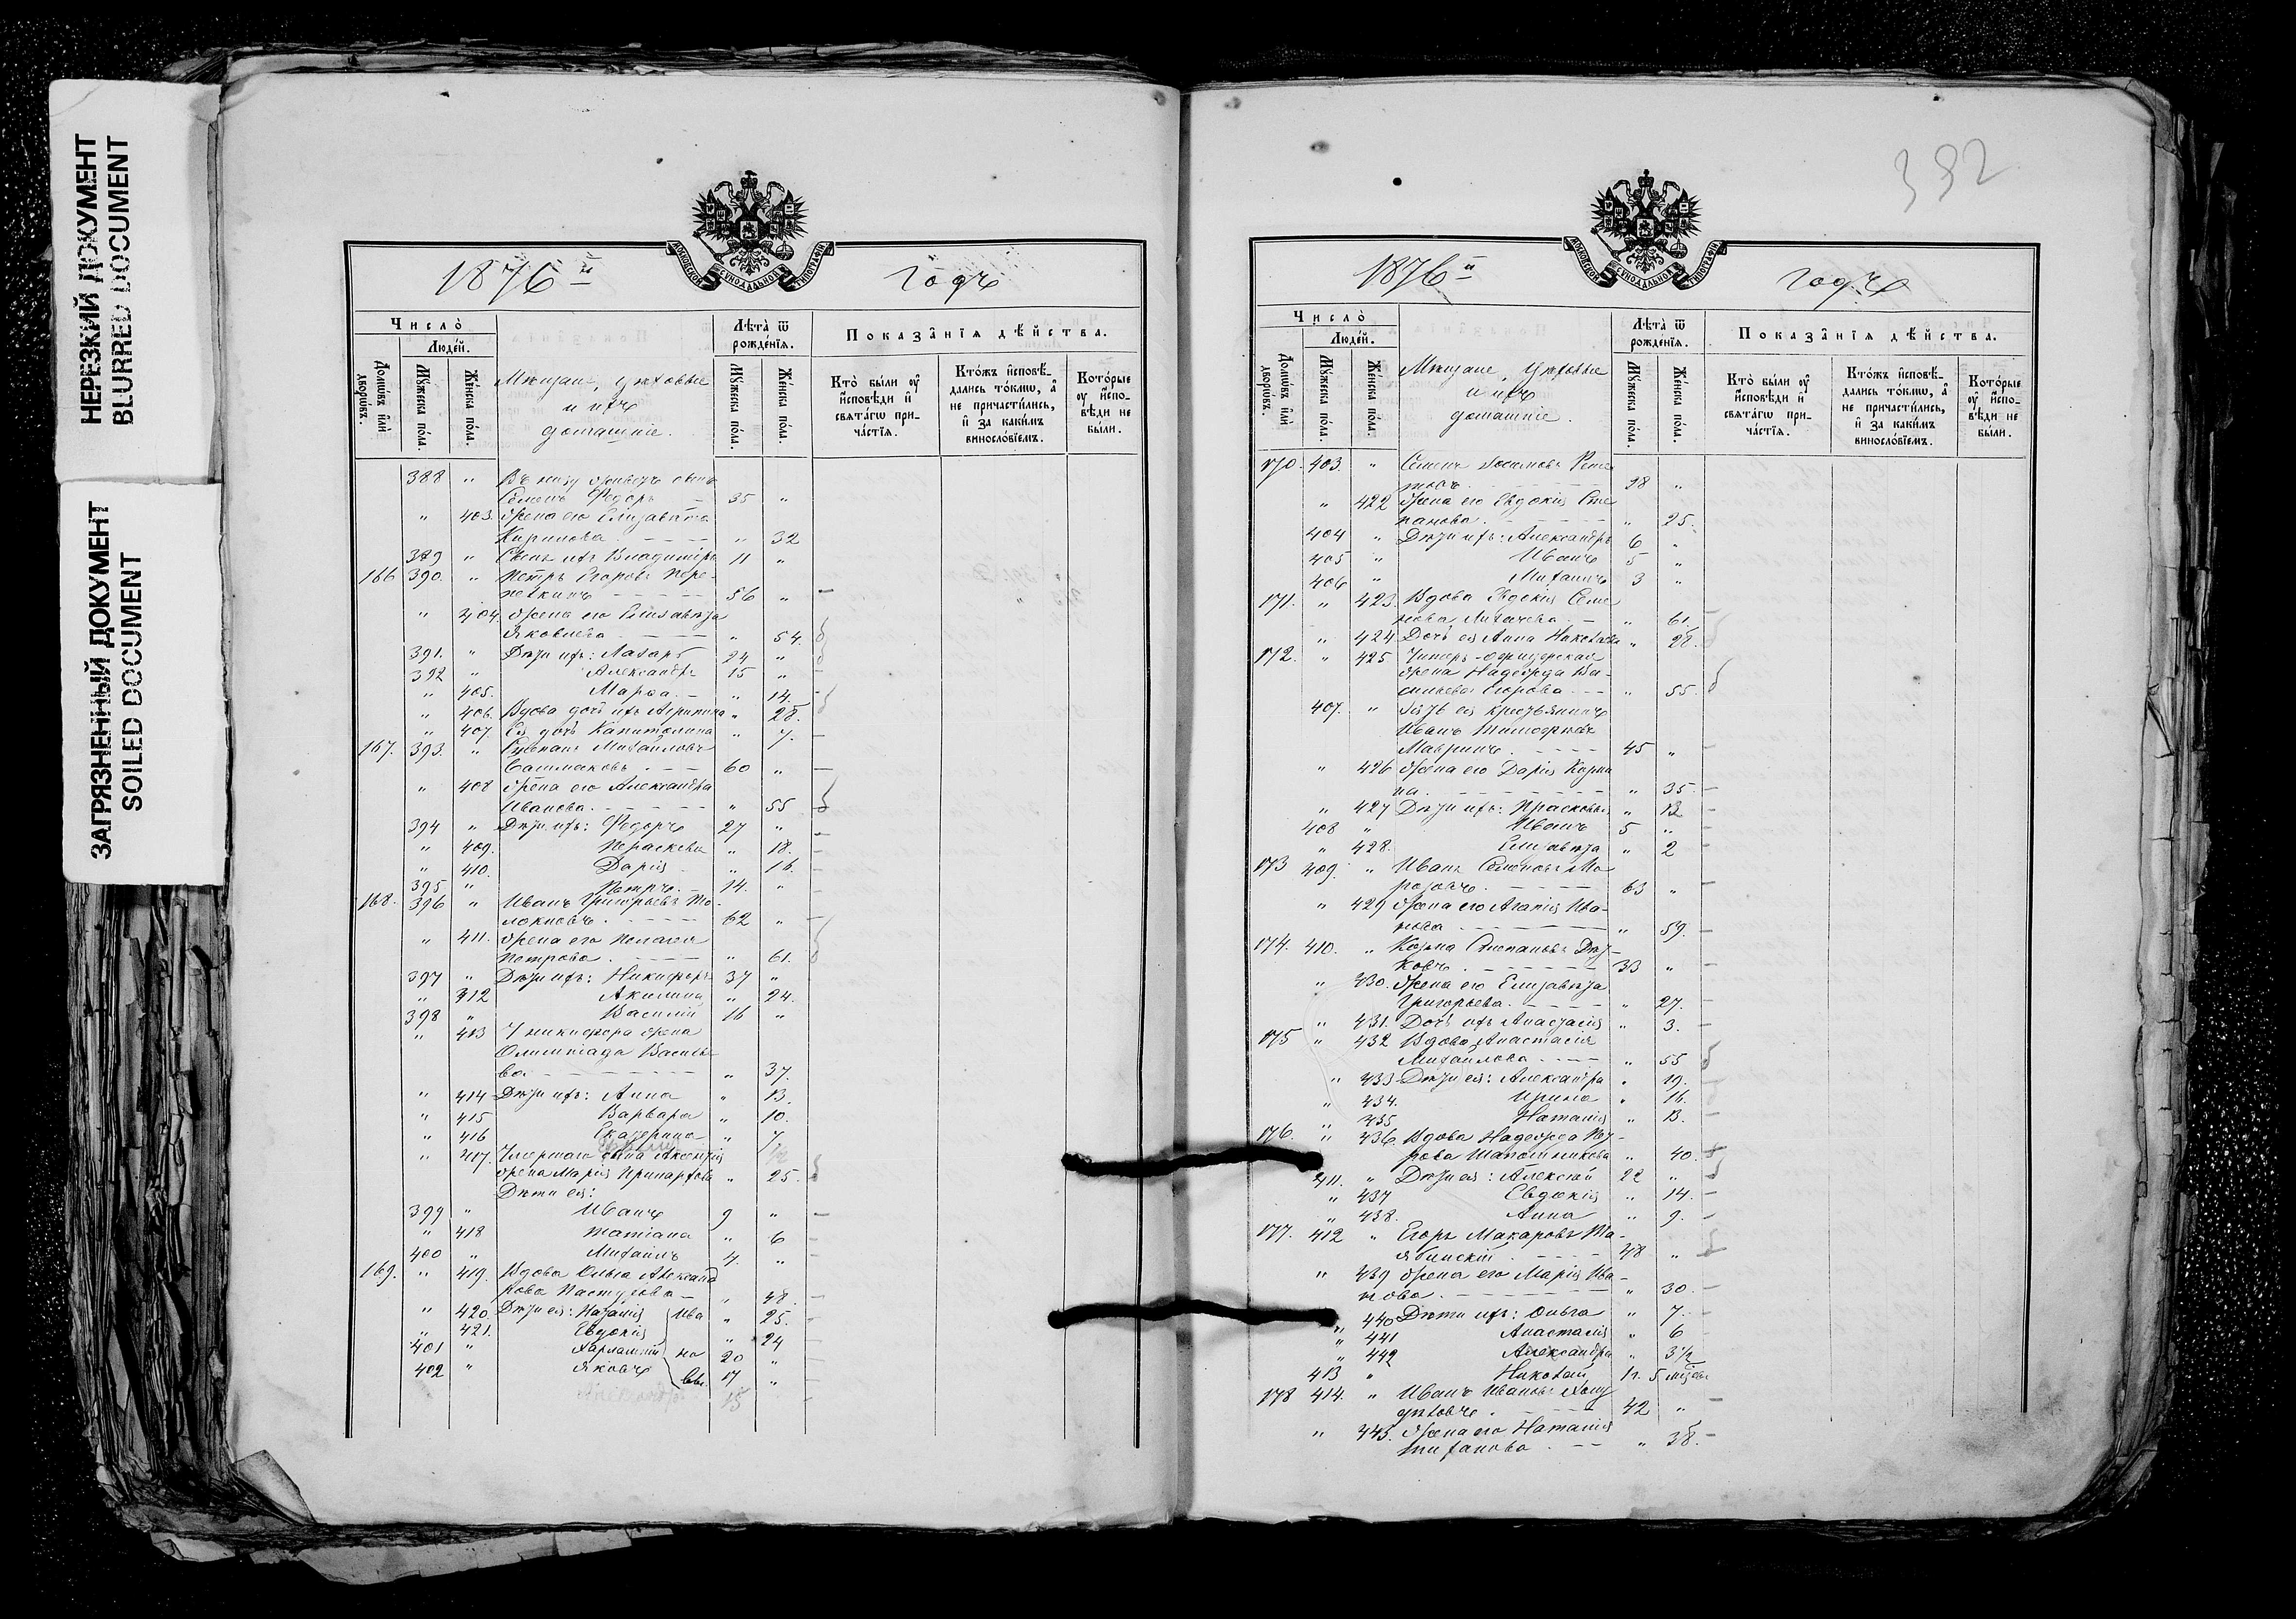 НЕРЕЗКИЙ ДОКУМЕНТ
BLURRED DOCUMENT
ЗАГРЯЗНЕННЫЙ ДОКУМЕНТ
SOILED DOCUMENT
МОСКОВСКОЙ СѴНОДАЛЬНОЙ ТИПОГРАФІИ
1876 й годъ
Число̀
Людéй.
Домѡ́въ и҆лѝ дворѡ́въ.
Мꙋ́жеска по́ла.
Же́нска по́ла.
Мѣщане, цеховые
и ихъ
домашніе.
Лѣта̀ ѿ рожде́нїѧ.
Мꙋ́жеска по́ла.
Же́нска по́ла.
Показа̑нїѧ дѣ́йства.
Кто̀ бы́ли ᲂу҆ и҆сповѣ́ди и҆ свѧта́гѡ прича́стїѧ.
Кто́жъ и҆сповѣ́дались то́кмѡ, а҆ не причасти́лись, и҆ за каки́мъ винослові́емъ.
Кото́рые ᲂу҆ и҆сповѣ́ди не бы́ли.
388 "
Семенъ Федоръ — 35 "
" 403. Жена его Елизавета
Кирилова — " 32
389 " Сынъ ихъ Владиміръ 11 "
166 390. " Петръ Егоровъ Пере-
петкинъ — 56 "
" 404. Жена его Елизавета
Яковлева — " 54.
391. " Дѣти ихъ: Лазарь 24 "
392 " Александръ 15 "
" 405. Марѳа — " 14.
" 406. Вдова дочь ихъ Агрипина " 28.
" 407 Ея дочь Капитолина " 7.
167. 393. " Степанъ Михайловъ
Башмаковъ — 60 "
" 408 Жена его Александра
Иванова — " 55
394 " Дѣти ихъ: Федоръ 27 "
" 409. Параскева " 18.
" 410. Дарія " 16.
395 " Петръ 14. "
168. 396 " Иванъ Григорьевъ То-
локновъ — 62 "
" 411. Жена его Пелагея
Петрова — " 61.
397 " Дѣти ихъ: Никифоръ 37 "
" 412 Акилина " 24.
398 " Василій 16 "
" 413 У Никифора жена
Олимпіада Василье
ва — " 37.
" 414 Дѣти ихъ: Анна " 13.
" 415 Варвара " 10.
" 416 Екатерина " 7.
" 417. Умершаго сына Аксентія
жена Марія Принархова " 25.
Дѣти ея:
399 " Иванъ 9 "
" 418 Татіана " 6
400 " Михаилъ 4. "
169. " 419. Вдова Ольга Александ
рова Пастухова — " 48.
" 420. Дѣти ея: Наталія Ива " 25.
" 421. Евдокія " 24
401 " Харлампій но 20 "
402 " Яковъ вы. 17 "
15
392
1876 й годъ
Число̀
Людéй.
Домѡ́въ и҆лѝ дворѡ́въ.
Мꙋ́жеска по́ла.
Же́нска по́ла.
Мѣщане, цеховые
и ихъ
домашніе.
Лѣта̀ ѿ рожде́нїѧ.
Мꙋ́жеска по́ла.
Же́нска по́ла.
Показа̑нїѧ дѣ́йства.
Кто̀ бы́ли ᲂу҆ и҆сповѣ́ди и҆ свѧта́гѡ прича́стїѧ.
Кто́жъ и҆сповѣ́дались то́кмѡ, а҆ не причасти́лись, и҆ за каки́мъ винослові́емъ.
Кото́рые ᲂу҆ и҆сповѣ́ди не бы́ли.
170. 403. " Семенъ
" 422 Жена его Евдокія Сте
панова — " 25.
404 " Дѣти ихъ: Александръ 6 "
405 " Иванъ 5 "
406 " Михаилъ 3 "
171. " 423. Вдова Евдокія Семе
нова Лихачева — " 61.
" 424 Дочь ея Анна Николаева " 28.
172. " 425 Унтеръ-офицерская
жена Надежда Ва-
сильева Егорова — " 55.
407. " Зять ея крестьянинъ
Иванъ Тимофѣевъ
Мавринъ — 45 "
" 426 Жена его Дарія Карпи
на — " 35
" 427 Дѣти ихъ: Прасковья " 12
408 " Иванъ 5 "
" 428. Елизавета " 2
173 409. " Иванъ Семеновъ Мо
розовъ — 63 "
" 429 Жена его Агапія Ива-
нова — " 59.
174. 410. " Козьма Степановъ Дья-
ковъ — 33 "
" 430. Жена его Елизавета
Григорьева — " 27.
" 431. Дочь ихъ Анастасія " 3.
175 " 432 Вдова Анастасія
Михайлова — " 55
" 433 Дѣти ея: Александра " 19.
" 434. Ирина " 16.
" 435 Наталія " 13.
176. " 436 Вдова Надежда Пет-
рова Шапошникова " 40.
411. " Дѣти ея: Алексѣй 22 "
" 437 Евдокія " 14.
" 438. Анна " 9.
177. 412 " Егоръ Макаровъ Та-
ябинскій — 48 "
" 439 Жена его Марія Ива-
нова — " 30.
" 440 Дѣти ихъ: Ольга " 7.
" 441 Анастасія " 6
" 442 Александра " 3½
413 " Николай 1г. 5 мѣсяц
178 414. " Иванъ Ивановъ
— 42 "
" 443. Жена его Наталія
Тиханова — " 38.